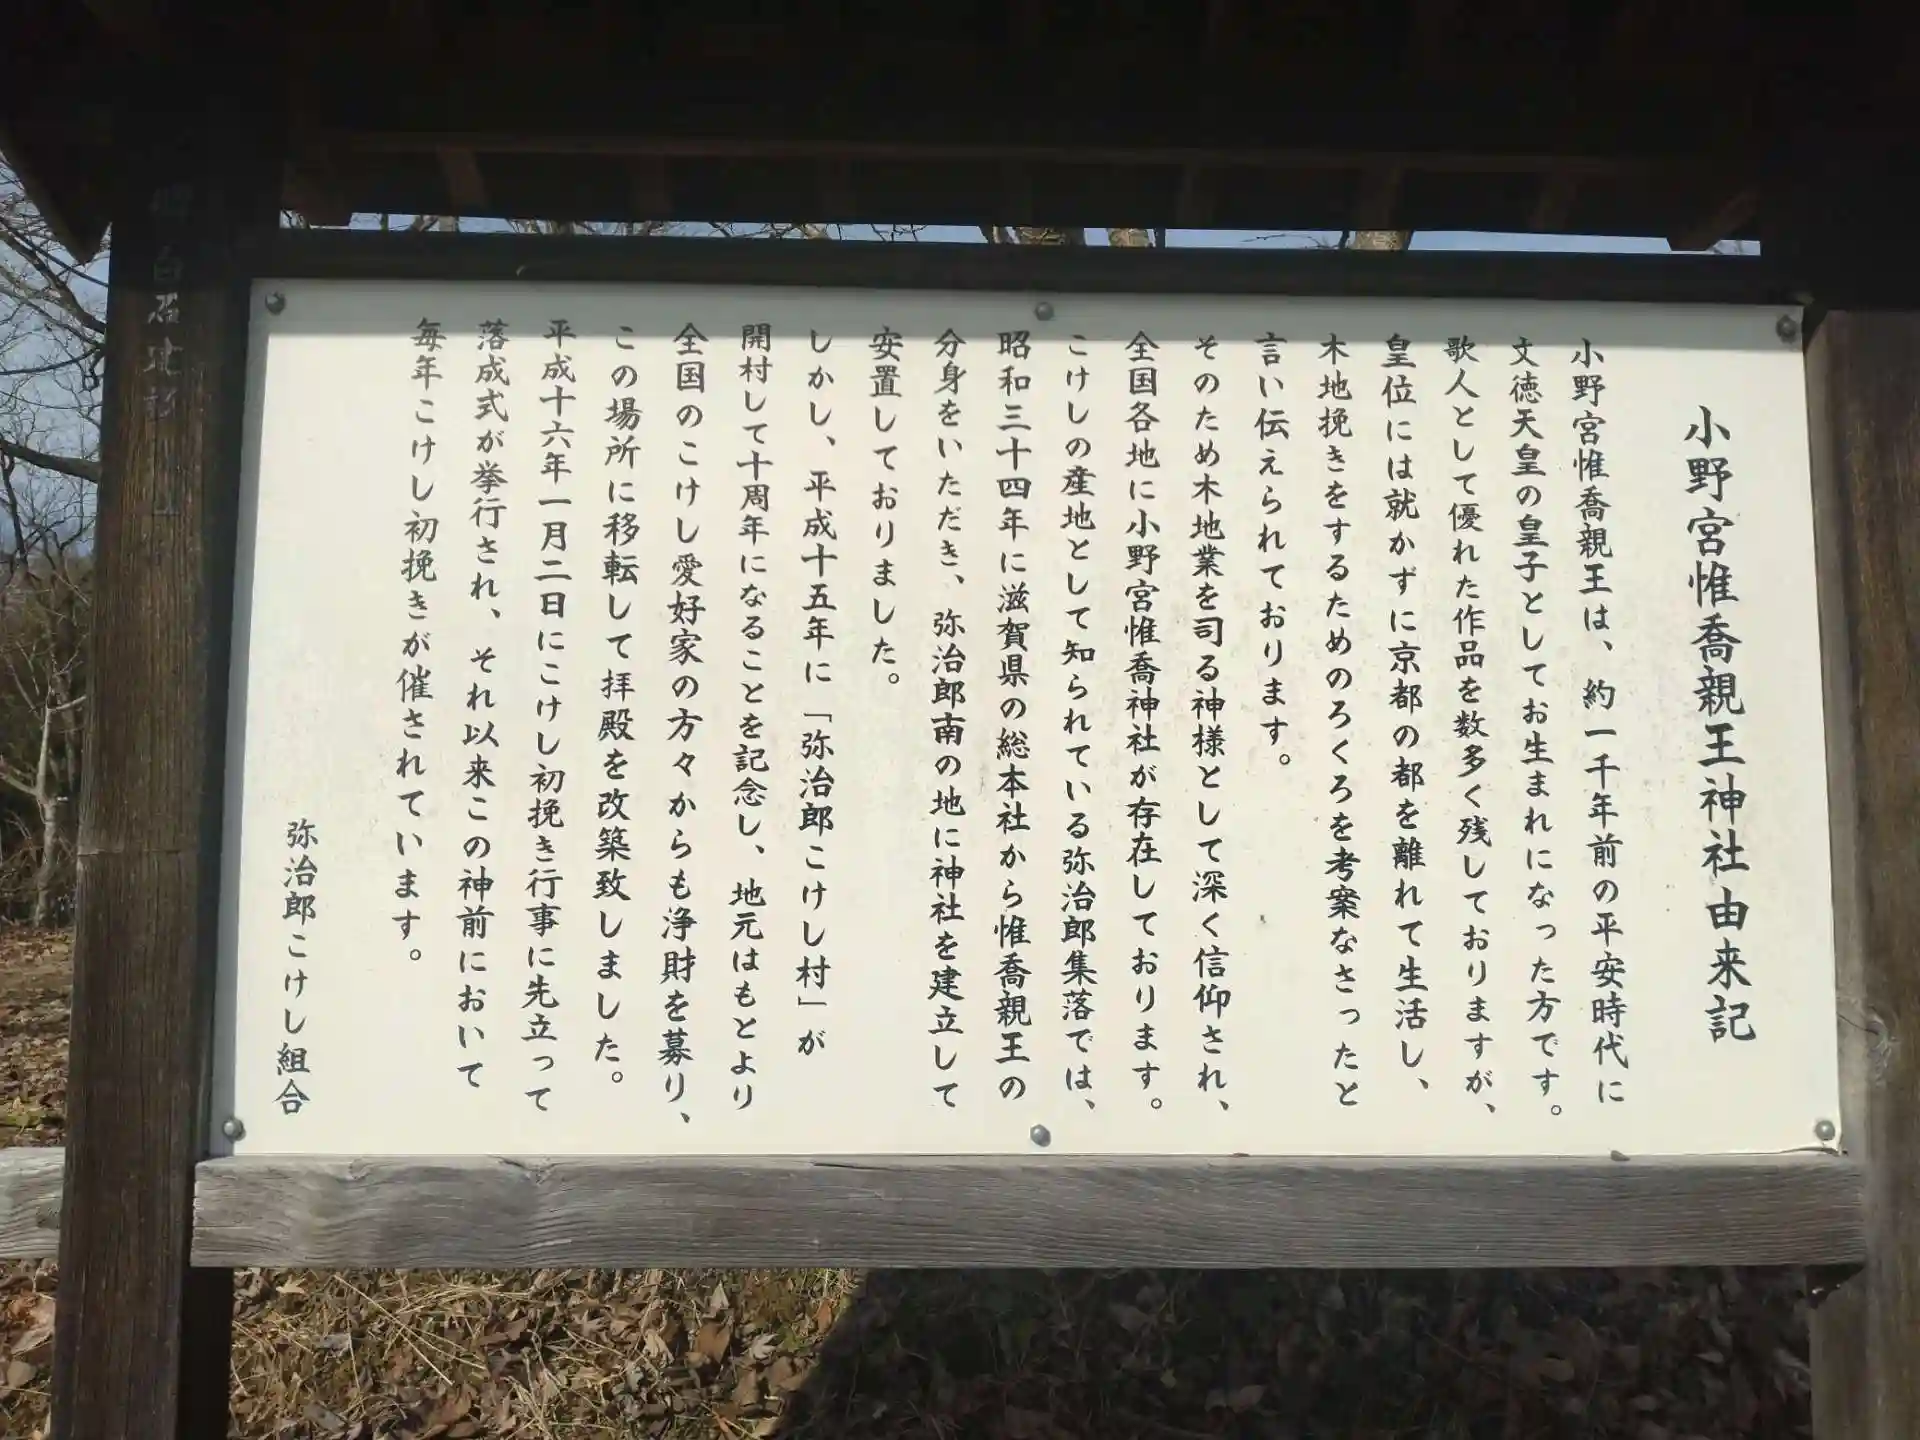 小野宮惟喬親王神社由来記
小野宮惟喬親王は、約一千年前の平安時代に
文徳天皇の皇子としてお生まれになった方です。
歌人として優れた作品を数多く残しておりますが、
皇位には就かずに京都の都を離れて生活し、
木地挽きをするためのろくろを考案なさったと
言い伝えられております。
そのため木地業を司る神様として深く信仰され、
全国各地に小野宮惟喬神社が存在しております。
こけしの産地として知られている弥治郎集落では、
昭和三十四年に滋賀県の総本社から惟喬親王の
分身をいただき、弥治郎南の地に神社を建立して
安置しておりました。
しかし、平成十五年に「弥治郎こけし村」が
開村して十周年になることを記念し、地元はもとより
全国のこけし愛好家の方々からも浄財を募り、
この場所に移転して拝殿を改築致しました。
平成十六年一月二日にこけし初挽き行事に先立って
落成式が挙行され、それ以来この神前において
毎年こけし初挽きが催されています。
弥治郎こけし組合
白石